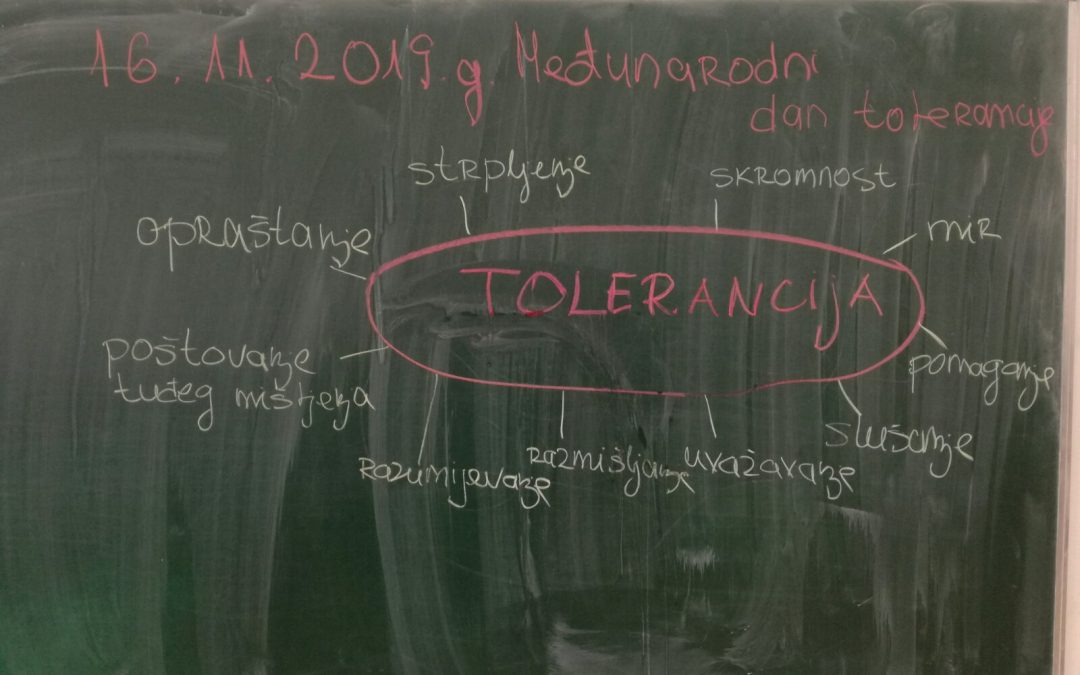 16. 11. 2019. g. Međunarodni
dan tolerancije
strpljenje
SKROMNOST
opraštanje
mir
TOLERANCIJA
poštovanje
tuđeg mišljenja
pomaganje
slušanje
razumijevanje
razmišljanje
uvažavanje